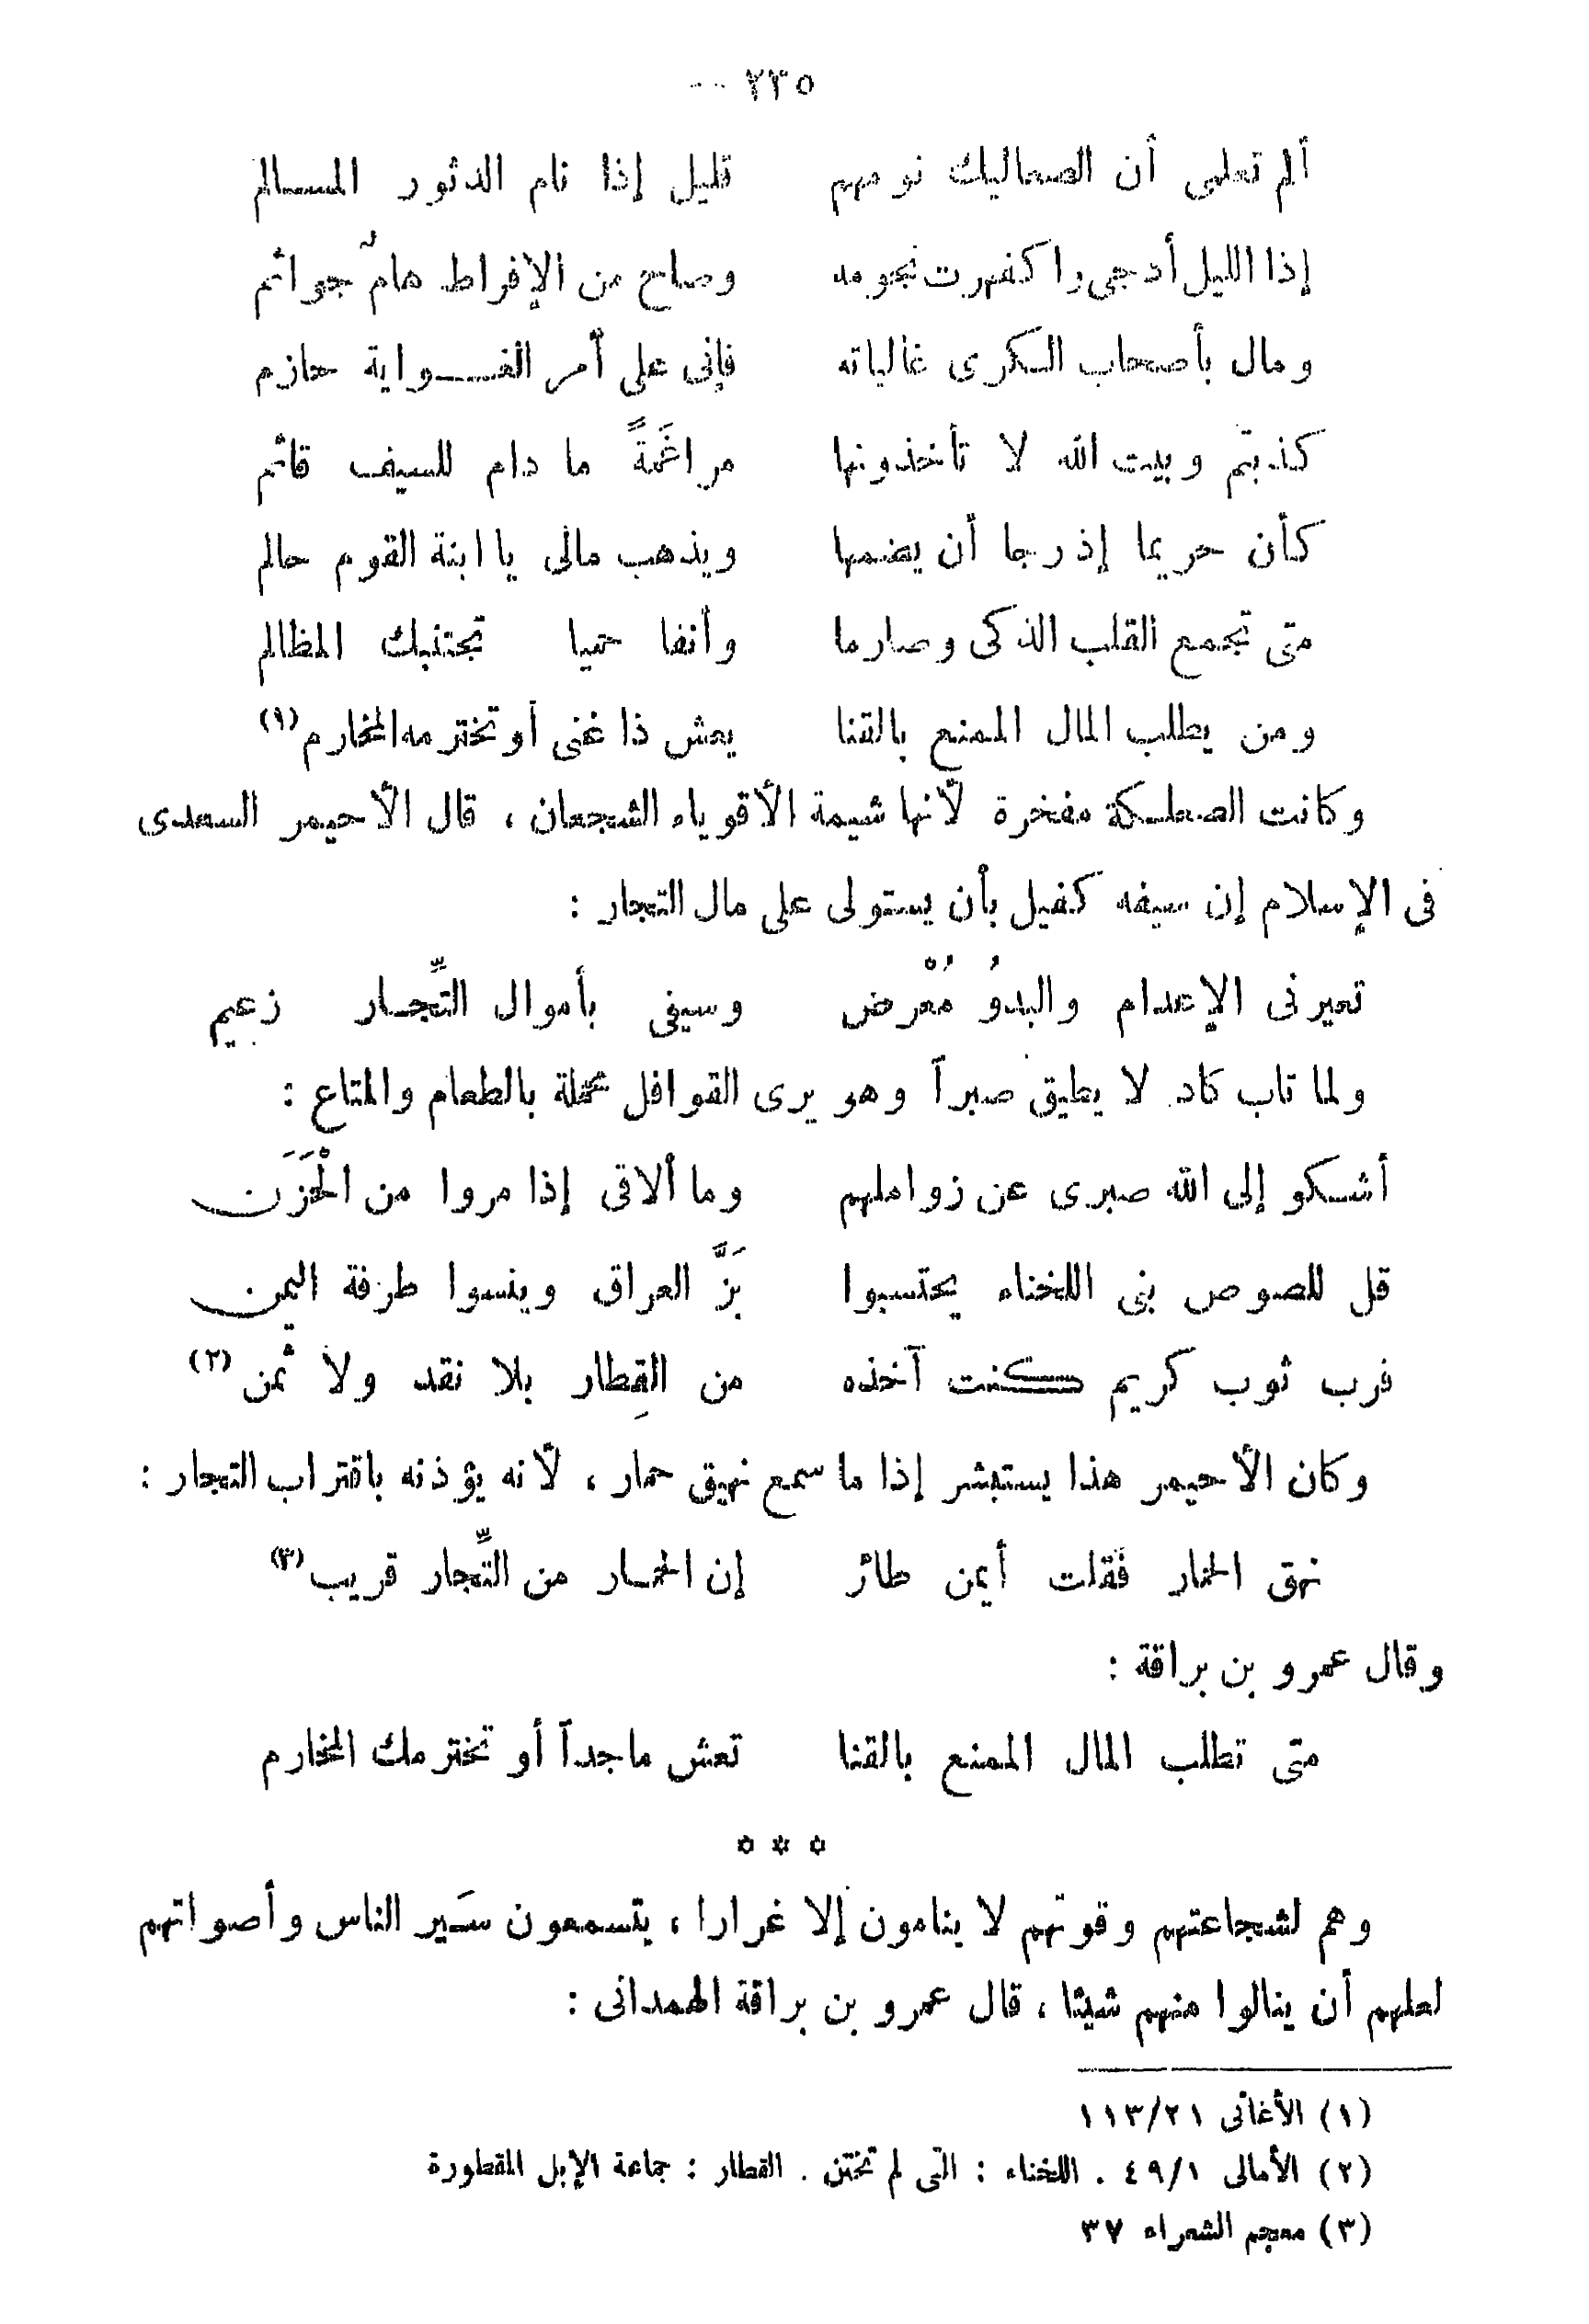 ٢٣٥ --
ألم تعلمى أن الصعاليك نومهم قليل إذا نام الدثور المسالم
إذا الليل أدجى واكفهرت نجومه وصاح من الإفراط هامٌ جواثم
ومال بأصحاب الكرى غالباته فإنى على أمر الغواية حازم
كذبتم وبيت الله لا تأخذونها مراغَمَةً ما دام للسيف قائم
كأن حريما إذ رجا أن يضمها ويذهب مالى يا ابنة القوم حالم
متى تجمع القلب الذكى وصارما وأنفا حميا تجتنبك المظالم
ومن يطلب المال الممنع بالقنا يعش ذا غنى أو تخترمه المخارم (١)
وكانت الصعلكة مفخرة لأنها شيمة الأقوياء الشجعان ، قال الأحيمر السعدى
فى الإسلام إن سيفه كفيل بأن يستولى على مال التجار :
تعيرنى الإعدام والبدوُ مُعْرض وسيفى بأموال التِّجار زعيم
ولما تاب كاد لا يطيق صبراً وهو يرى القوافل محملة بالطعام والمتاع :
أشكو إلى الله صبرى عن زواملهم وما ألاقى إذا مروا من الْحَزَن
قل للصوص بنى اللخناء يحتسبوا بَزَّ العراق وينسوا طرفة اليمن
فرب ثوب كريم كنت آخذه من القِطار بلا نقد ولا ثمن (٢)
وكان الأحيمر هذا يستبشر إذا ما سمع نهيق حمار ، لأنه يؤذنه باقتراب التجار :
نهق الحمار فقلت أيمن طائر إن الحمار من التِّجار قريب (٣)
وقال عمرو بن براقة :
متى تطلب المال الممنع بالقنا تعش ماجداً أو تخترمك المخارم
* * *
وهم لشجاعتهم وقوتهم لا ينامون إلا غرارا ، يتسمعون سَير الناس وأصواتهم
لعلهم أن ينالوا منهم شيئا ، قال عمرو بن براقة الهمدانى :
(١) الأغانى ١١٣/٢١
(٢) الأمالى ٤٩/١ . اللخناء : التى لم تختن . القطار : جماعة الإبل المقطورة
(٣) معجم الشعراء ٣٧